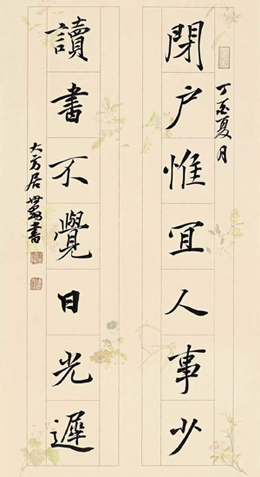 丁夏月
閉户惟宜人事少
讀書不覺日光遲
大方居世書